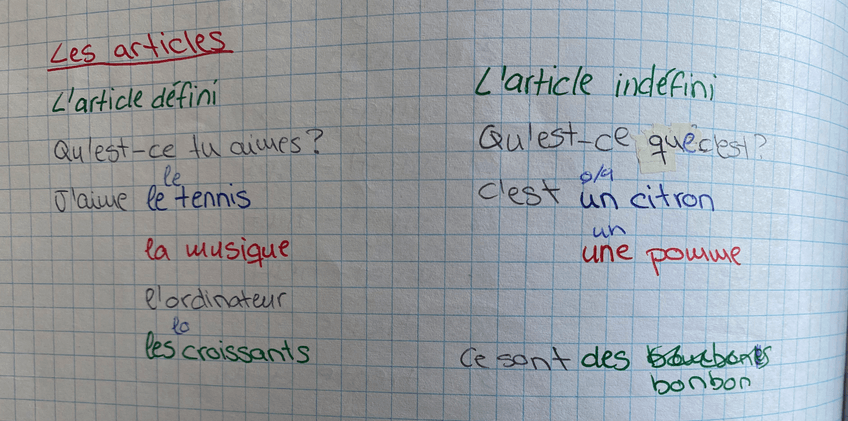 Les articles
L'article défini
Qu'est-ce tu aimes?
le
J'aime le tennis
la musique
l'ordinateur
les croissants
L'article indéfini
Qu'est-ce que c'est?
c'est un citron
un
une pomme
ce sont des
bonbon